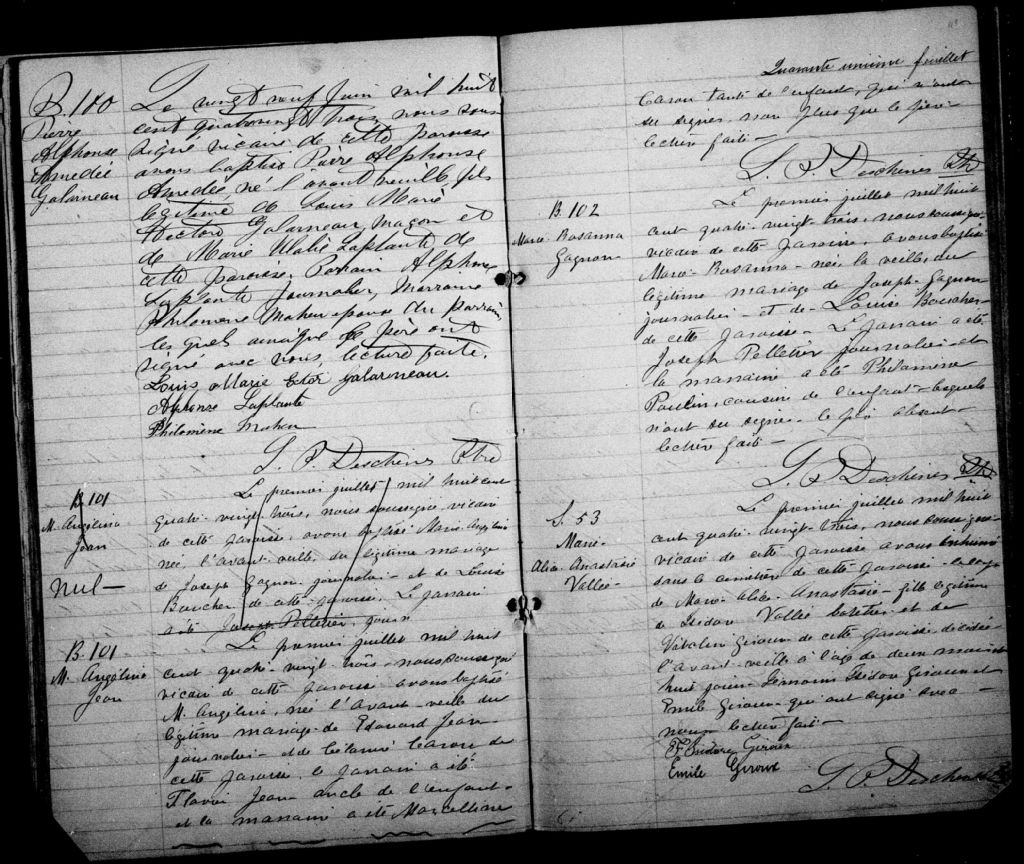 B. 100
Pierre
Alphonse
Amedée
Galarneau
Le vingt neuf Juin mil huit
cent quatrevingt trois nous sous
signé vicaire de cette paroisse
avons baptisé Pierre Alphonse
Amedée né l'avant veille fils
légitime de Louis Marie
Hector Galarneau maçon et
de Marie Laplante de
cette paroisse. Parrain Alphonse
Laplante Journalier, Marraine
Philomène Maheu épouse du parrain,
les quels ainsi que le père ont
signé avec nous, lecture faite.
Louis Marie Ector Galarneau.
Alphonse Laplante
Philomène Maheu
S. P. Deschènes Ptre
B. 101
M. Angélina
Jean
nul —
Le premier juillet mil huit cent
quatre-vingt-trois, nous soussigné vicaire
de cette paroisse, avons baptisé Marie-Angélina
née, l'avant-veille, du légitime mariage
de Joseph Gagnon journalier - et de Louise
Boucher de cette paroisse. Le parrain
a été Joseph Pelletier, journ
B. 101
M. Angélina
Jean
Le premier juillet mil huit
cent quatre vingt trois - nous soussigné
vicaire de cette paroisse avons baptisé
M. Angélina, née l'avant-veille du
légitime mariage de Edouard Jean
journalier - et de Caron de
cette paroisse. le parrain a été
Flavien Jean oncle de l'enfant -
et la marraine a été Marcelline
Quarante unième feuillet
Caron tante de l'enfant, qui n'ont
su signer, non plus que le père
lecture faite —
S. P. Deschènes Ptr
B. 102
Marie-Rosanna
Gagnon
Le premier juillet mil huit
cent quatre-vingt-trois, nous soussigné
vicaire de cette paroisse, avons baptisé
Marie-Rosanna - née, la veille, du
légitime mariage de Joseph Gagnon
journalier - et de - Louise Boucher -
de cette paroisse - Le parrain a été
Joseph Pelletier journalier - et
la marraine a été Philomène
Poulin, cousine de l'enfant - lesquels
n'ont su signer - le père absent -
lecture faite —
S. P. Deschènes Ptr
S. 53
Marie-
Alice-Anastasie
Vallée -
Le premier juillet mil huit
cent quatre-vingt-trois, nous soussigné
vicaire de cette paroisse avons inhumé
dans le cimetière de cette paroisse - le corps
de Marie-Alice-Anastasie - fille légitime
de Isidore Vallée et de
Giroux de cette paroisse décédée
l'avant-veille à l'âge de deux mois et
huit jours - Témoins Isidore Giroux et
Emile Giroux - qui ont signé avec —
nous lecture faite —
F. Isidore Giroux
Emile Giroux
S. P. Deschènes